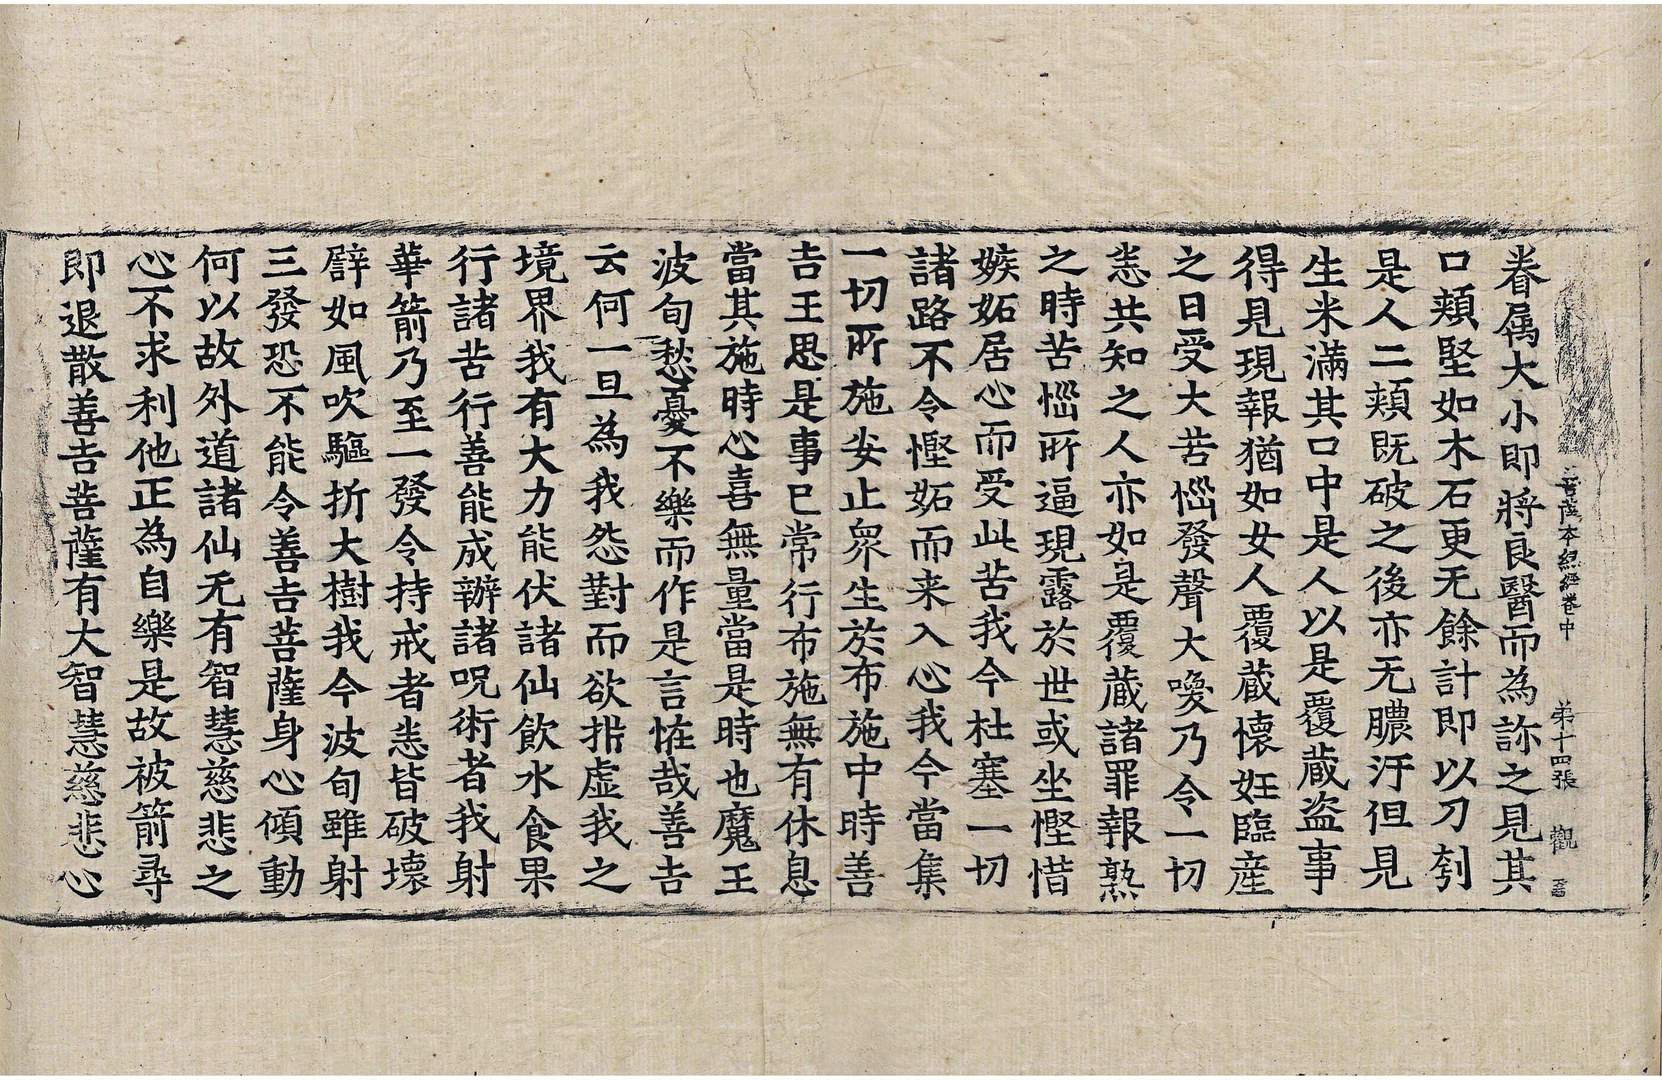 菩薩本縁經卷中　第十四張　觀
眷属大小即將良醫而為訴之見其
口頰堅如木石更无餘計即以刀刳
是人二頰既破之後亦无膿汙但見
生米滿其口中是人以是覆蔵盗事
得見現報猶如女人覆蔵懐妊臨産
之日受大苦惱發聲大喚乃令一切
恙共知之人亦如是覆蔵諸罪報熟
之時苦惱所逼現露於世或坐慳惜
嫉妬居心而受此苦我今杜塞一切
諸路不令慳妬而来入心我今當集
一切所施安止衆生於布施中時善
吉王思是事已常行布施無有休息
當其施時心喜無量當是時也魔王
波旬愁憂不樂而作是言恠哉善吉
云何一旦為我怨對而欲掑虚我之
境界我有大力能伏諸仙飲水食果
行諸苦行善能成辦諸呪術者我射
華箭乃至一發令持戒者恙皆破壊
譬如風吹驅折大樹我今波旬雖射
三發恐不能令善吉菩薩身心傾動
何以故外道諸仙无有智慧慈悲之
心不求利他正為自樂是故被箭尋
即退散善吉菩薩有大智慧慈悲心